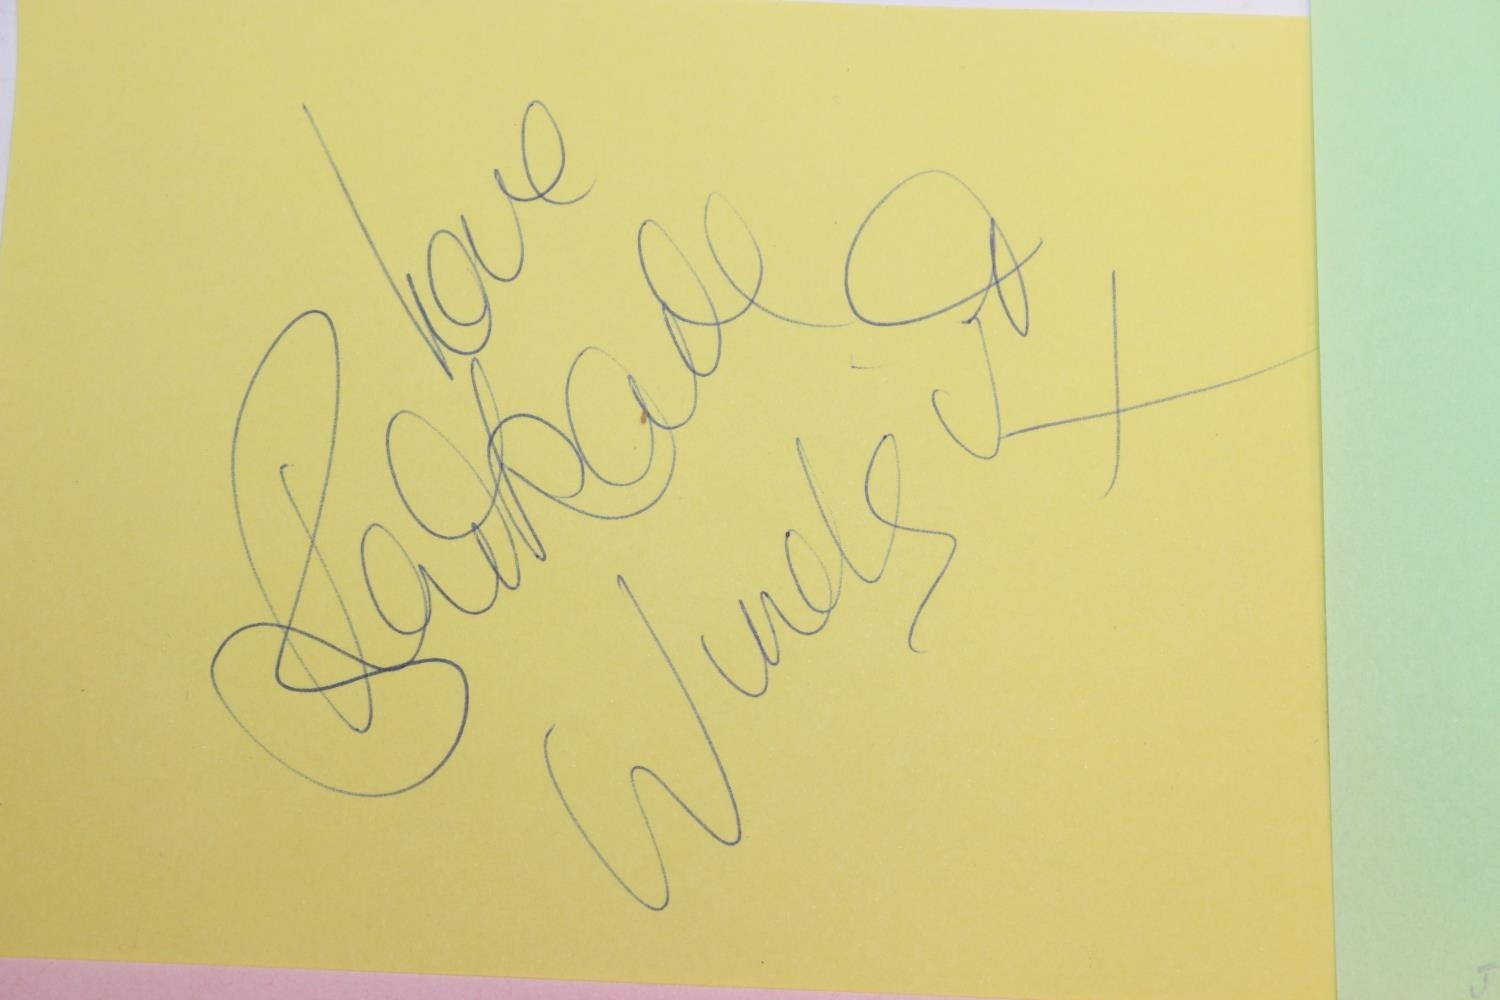 Love
Barbara
Windsor
J